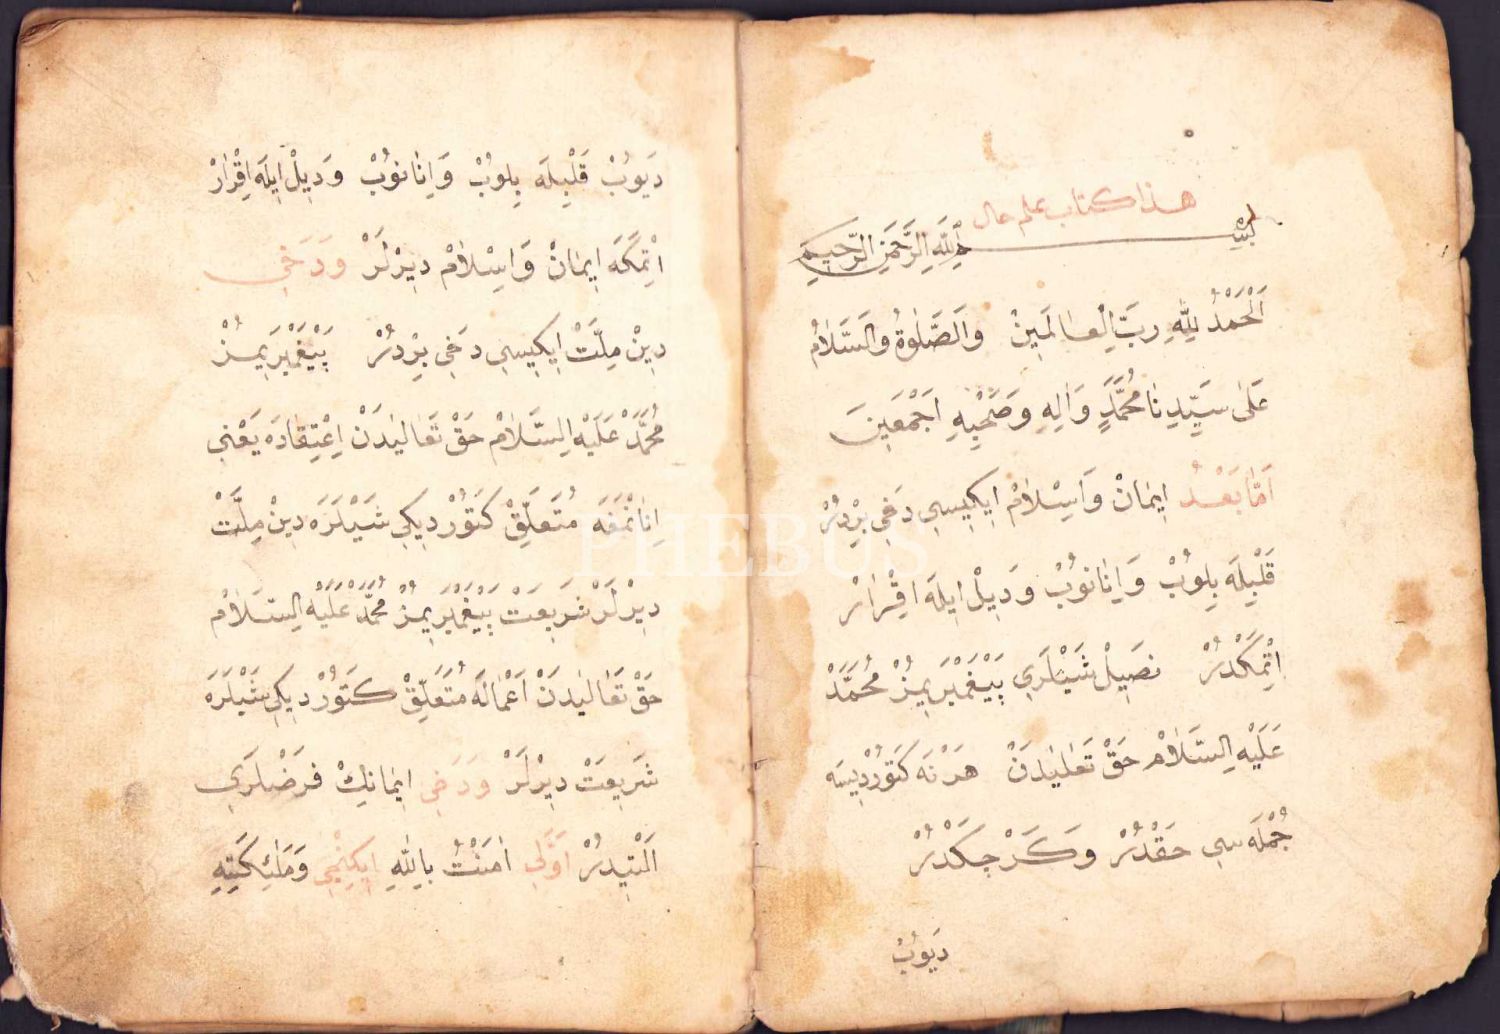 هذا كتاب علم حال
بِسْمِ اللّٰهِ الرَّحْمٰنِ الرَّحِيمِ
اَلْحَمْدُ لِلّٰهِ رَبِّ الْعَالَمِينْ وَالصَّلٰوةُ وَالسَّلَامُ
عَلٰى سَيِّدِنَا مُحَمَّدٍ وَاٰلِهِ وَصَحْبِهِ اَجْمَعِينَ
اَمَّا بَعْدُ اِيمَانْ وَاِسْلَامْ اِيكِيسِي دَخِي بِرْدُرْ
قَلْبِيلَه بِلُوبْ وَاِنَانُوبْ وَدِيلْ اِيلَه اِقْرَارْ
اِتْمَكْدُرْ نَصِيلْ شَيْلَرِي پَيْغَمْبَرِيمُزْ مُحَمَّدْ
عَلَيْهِ السَّلَامْ حَقْ تَعَالٰيدَنْ هَرْنَه كَتُورْدِيسَه
جُمْلَه سِي حَقْدُرْ وَكَرْجَكْدُرْ
دَيُوبْ
PHEBUS
دَيُوبْ قَلْبِيلَه بِلُوبْ وَاِنَانُوبْ وَدِيلْ اِيلَه اِقْرَارْ
اِتْمَكَه اِيمَانْ وَاِسْلَامْ دِيرْلَرْ وَدَخِي
دِينْ مِلَّتْ اِيكِيسِي دَخِي بِرْدُرْ پَيْغَمْبَرِيمُزْ
مُحَمَّدْ عَلَيْهِ السَّلَامْ حَقْ تَعَالٰيدَنْ اِعْتِقَادَه يَعْنِي
اِنَانْمَغَه مُتَعَلِّقْ كَتُورْدِيكِي شَيْلَرَه دِينْ مِلَّتْ
دِيرْلَرْ شَرِيعَتْ پَيْغَمْبَرِيمُزْ مُحَمَّدْ عَلَيْهِ السَّلَامْ
حَقْ تَعَالٰيدَنْ اَعْمَالَه مُتَعَلِّقْ كَتُورْدِيكِي شَيْلَرَه
شَرِيعَتْ دِيرْلَرْ وَدَخِي اِيمَانِكْ فَرْضْلَرِي
اَلْتِيدُرْ اَوَّلِي اٰمَنْتُ بِاللّٰهِ اِيكِنْجِي وَمَلٰئِكَتِهِ